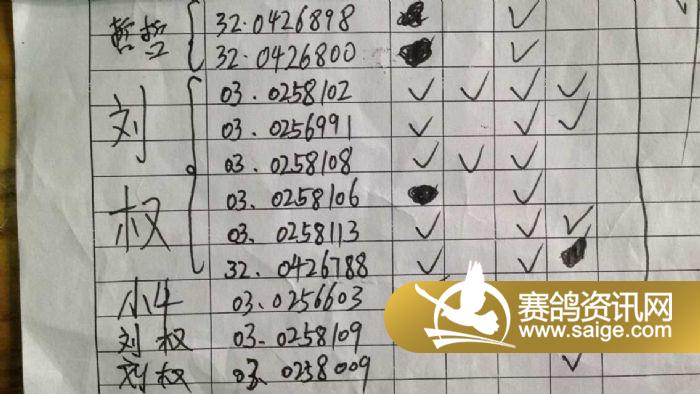 哲哲 32.0426898 ✓
32.0426800 ✓
刘权 03.0258102 ✓ ✓ ✓ ✓
03.0256991 ✓ ✓ ✓
03.0258108 ✓ ✓ ✓
03.0258106 ✓
03.0258113 ✓ ✓ ✓
32.0426788 ✓ ✓
小牛 03.0256603
刘权 03.0258109
刘权 03.0258009 ✓
赛鸽资讯网
www.saige.com